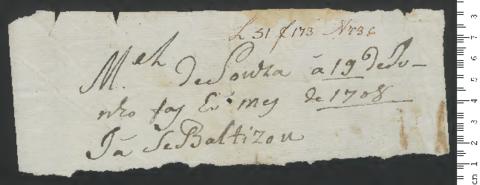 L 51 f 173 N 736
M.el de Souza á 19 de Ju-
nho faz Ex.mes de 1708
Já se Baltizou